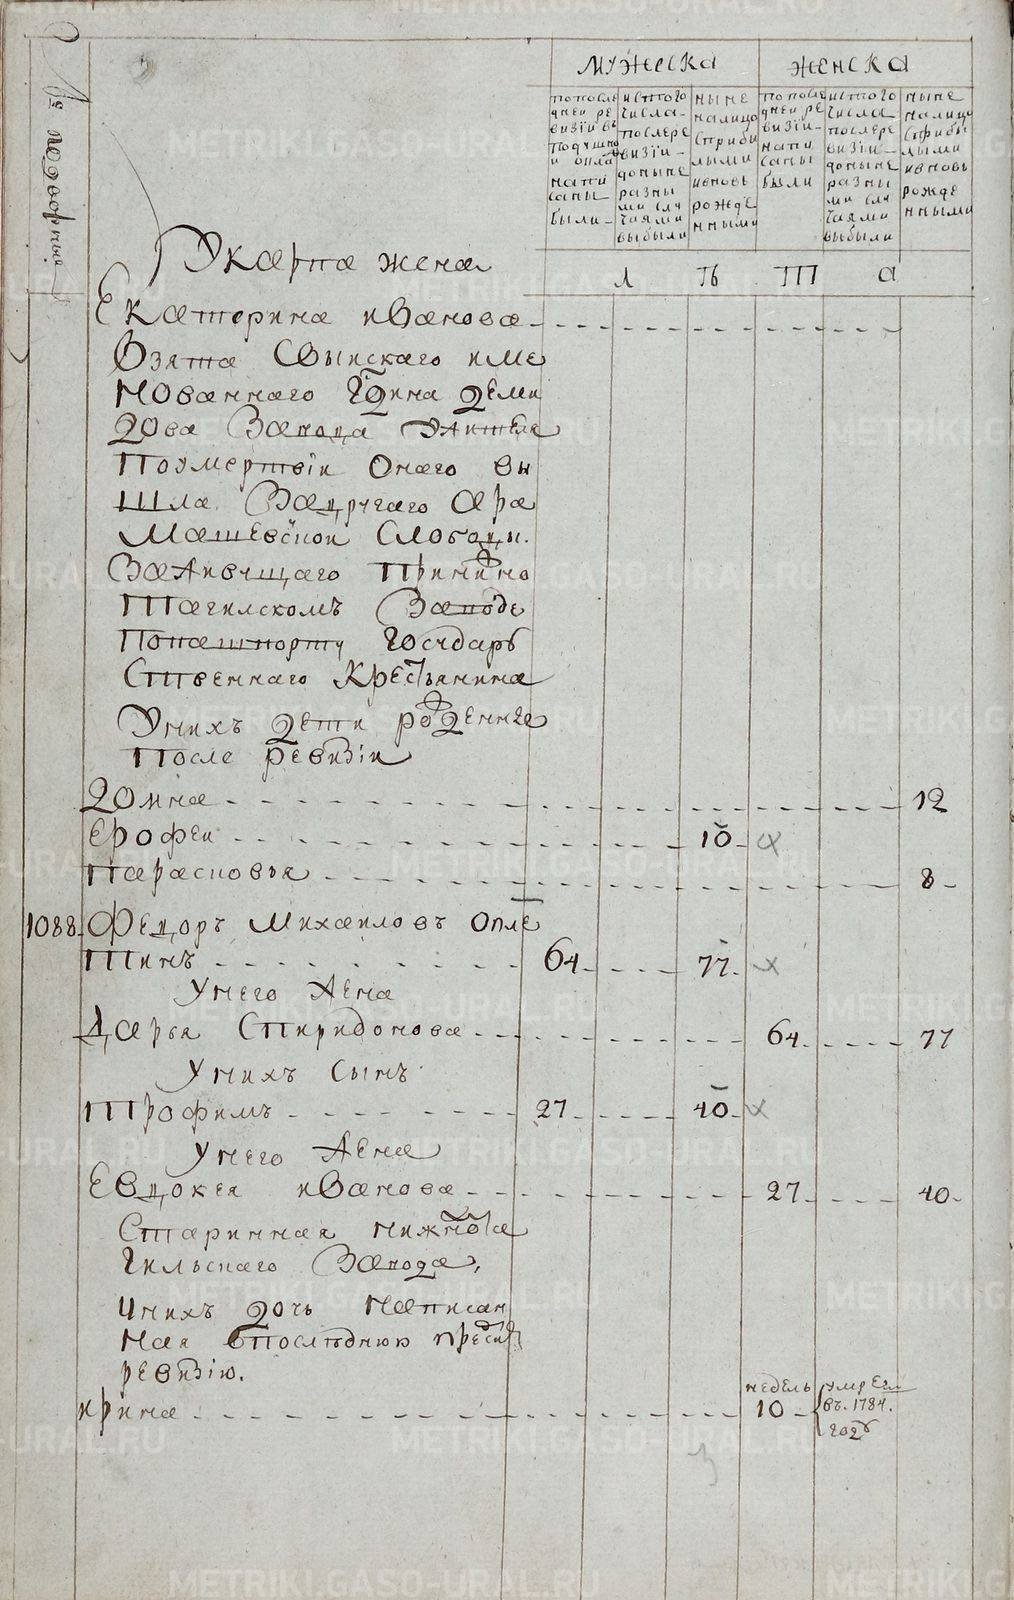 № подворные
МУЖЕСКА
ЖЕНСКА
попосле
дней ре
визіи въ
подушно
и
напи
саны
были
исътого
числа
послере
визіи
доныне
разны
ми слу
чаями
выбыли
ныне
налицо
сприбы
лыми
ивновь
рожде
нными
попосле
дней ре
визіи
напи
саны
были
исътого
числа
послере
визіи
доныне
разны
ми слу
чаями
выбыли
ныне
налицо
сприбы
лыми
ивновь
рожде
нными
Л Ѣ Т А
Укарпа жена
Екатерина иванова
Взята Свыискаго име
нованнаго Гдина деми
дова Завода жителя
Поумертвіи онаго вы
шла Задругаго ара
машевской Слободы.
Заживущаго Принижно
Тагилскомъ Заводе
Попашпорту Государь
ственнаго Крестьянина
Унихъ дети рожденные
После ревизіи
Домна 12
Ерофеи 10
Парасковья 8
1088 Федоръ Михаиловъ опле
тинъ 64 77
Унего Жена
Дарья Спиридонова 64 77
Унихъ Сынъ
Трофимъ 27 40
Унего Жена
Евдокея иванова 27 40
Старинная нижнота
гильскаго Завода,
Унихъ дочь написан
ная впоследнюю предсию
ревизію.
ирина недель 10 умре
въ. 1784.
годѣ
METRIKI.GASO-URAL.RU